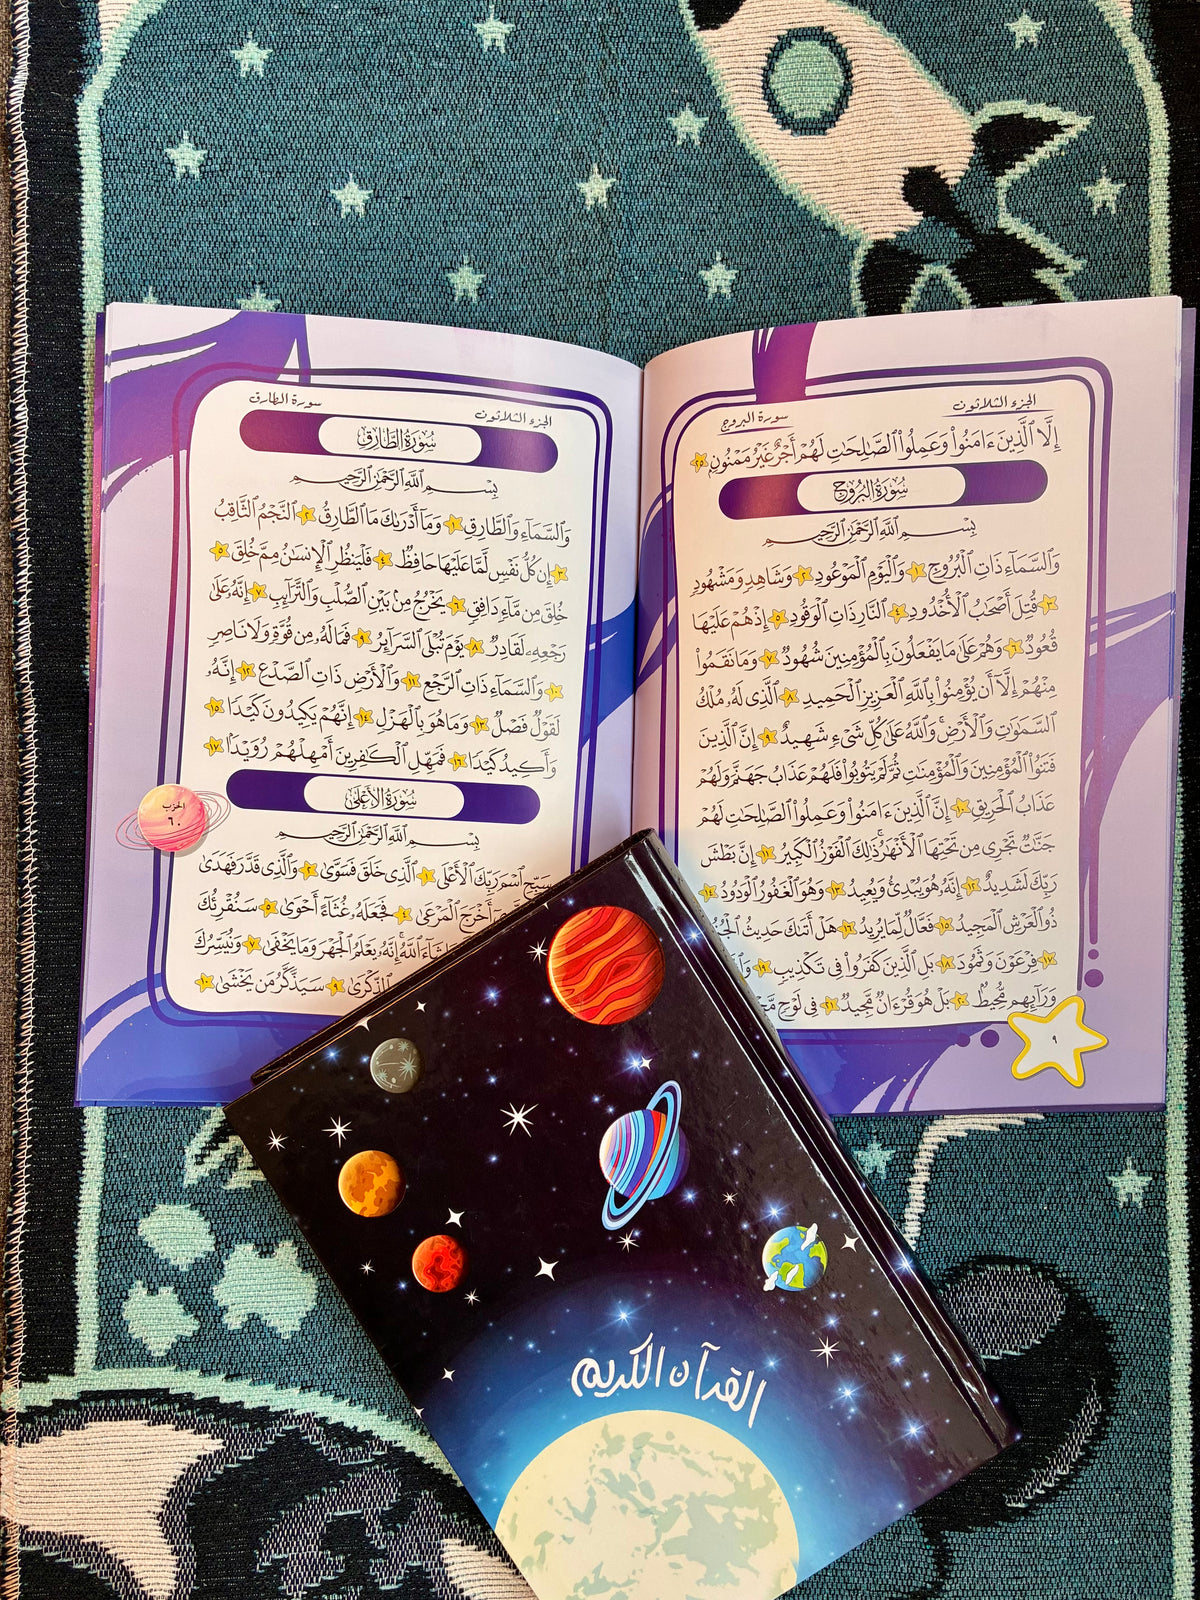 الجزء الثلاثون سورة البروج
إِلَّا ٱلَّذِينَ ءَامَنُوا۟ وَعَمِلُوا۟ ٱلصَّٰلِحَٰتِ لَهُمْ أَجْرٌ غَيْرُ مَمْنُونٍ ٢٥
سُورَةُ البُرُوجِ
بِسْمِ ٱللَّهِ ٱلرَّحْمَٰنِ ٱلرَّحِيمِ
وَٱلسَّمَآءِ ذَاتِ ٱلْبُرُوجِ ١ وَٱلْيَوْمِ ٱلْمَوْعُودِ ٢ وَشَاهِدٍ وَمَشْهُودٍ
٣ قُتِلَ أَصْحَٰبُ ٱلْأُخْدُودِ ٤ ٱلنَّارِ ذَاتِ ٱلْوَقُودِ ٥ إِذْ هُمْ عَلَيْهَا
قُعُودٌ ٦ وَهُمْ عَلَىٰ مَا يَفْعَلُونَ بِٱلْمُؤْمِنِينَ شُهُودٌ ٧ وَمَا نَقَمُوا۟
مِنْهُمْ إِلَّآ أَن يُؤْمِنُوا۟ بِٱللَّهِ ٱلْعَزِيزِ ٱلْحَمِيدِ ٨ ٱلَّذِى لَهُۥ مُلْكُ
ٱلسَّمَٰوَٰتِ وَٱلْأَرْضِ ۚ وَٱللَّهُ عَلَىٰ كُلِّ شَىْءٍ شَهِيدٌ ٩ إِنَّ ٱلَّذِينَ
فَتَنُوا۟ ٱلْمُؤْمِنِينَ وَٱلْمُؤْمِنَٰتِ ثُمَّ لَمْ يَتُوبُوا۟ فَلَهُمْ عَذَابُ جَهَنَّمَ وَلَهُمْ
عَذَابُ ٱلْحَرِيقِ ١٠ إِنَّ ٱلَّذِينَ ءَامَنُوا۟ وَعَمِلُوا۟ ٱلصَّٰلِحَٰتِ لَهُمْ
جَنَّٰتٌ تَجْرِى مِن تَحْتِهَا ٱلْأَنْهَٰرُ ۚ ذَٰلِكَ ٱلْفَوْزُ ٱلْكَبِيرُ ١١ إِنَّ بَطْشَ
رَبِّكَ لَشَدِيدٌ ١٢ إِنَّهُۥ هُوَ يُبْدِئُ وَيُعِيدُ ١٣ وَهُوَ ٱلْغَفُورُ ٱلْوَدُودُ ١٤
ذُو ٱلْعَرْشِ ٱلْمَجِيدُ ١٥ فَعَّالٌ لِّمَا يُرِيدُ ١٦ هَلْ أَتَىٰكَ حَدِيثُ
١٧ فِرْعَوْنَ وَثَمُودَ ١٨ بَلِ ٱلَّذِينَ كَفَرُوا۟ فِى تَكْذِيبٍ ١٩
وَرَآئِهِم مُّحِيطٌۢ ٢٠ بَلْ هُوَ قُرْءَانٌ مَّجِيدٌ ٢١ فِى لَوْحٍ
٩
الجزء الثلاثون سورة الطارق
سُورَةُ الطَّارِقِ
بِسْمِ ٱللَّهِ ٱلرَّحْمَٰنِ ٱلرَّحِيمِ
وَٱلسَّمَآءِ وَٱلطَّارِقِ ١ وَمَآ أَدْرَىٰكَ مَا ٱلطَّارِقُ ٢ ٱلنَّجْمُ ٱلثَّاقِبُ
٣ إِن كُلُّ نَفْسٍ لَّمَّا عَلَيْهَا حَافِظٌ ٤ فَلْيَنظُرِ ٱلْإِنسَٰنُ مِمَّ خُلِقَ ٥
خُلِقَ مِن مَّآءٍ دَافِقٍ ٦ يَخْرُجُ مِنۢ بَيْنِ ٱلصُّلْبِ وَٱلتَّرَآئِبِ ٧ إِنَّهُۥ عَلَىٰ
رَجْعِهِۦ لَقَادِرٌ ٨ يَوْمَ تُبْلَى ٱلسَّرَآئِرُ ٩ فَمَا لَهُۥ مِن قُوَّةٍ وَلَا نَاصِرٍ
١٠ وَٱلسَّمَآءِ ذَاتِ ٱلرَّجْعِ ١١ وَٱلْأَرْضِ ذَاتِ ٱلصَّدْعِ ١٢ إِنَّهُۥ
لَقَوْلٌ فَصْلٌ ١٣ وَمَا هُوَ بِٱلْهَزْلِ ١٤ إِنَّهُمْ يَكِيدُونَ كَيْدًا ١٥
وَأَكِيدُ كَيْدًا ١٦ فَمَهِّلِ ٱلْكَٰفِرِينَ أَمْهِلْهُمْ رُوَيْدًۢا ١٧
سُورَةُ الأَعْلَىٰ
بِسْمِ ٱللَّهِ ٱلرَّحْمَٰنِ ٱلرَّحِيمِ
سَبِّحِ ٱسْمَ رَبِّكَ ٱلْأَعْلَى ١ ٱلَّذِى خَلَقَ فَسَوَّىٰ ٢ وَٱلَّذِى قَدَّرَ فَهَدَىٰ
أَخْرَجَ ٱلْمَرْعَىٰ ٤ فَجَعَلَهُۥ غُثَآءً أَحْوَىٰ ٥ سَنُقْرِئُكَ
شَآءَ ٱللَّهُ ۚ إِنَّهُۥ يَعْلَمُ ٱلْجَهْرَ وَمَا يَخْفَىٰ ٧ وَنُيَسِّرُكَ
ٱلذِّكْرَىٰ ٩ سَيَذَّكَّرُ مَن يَخْشَىٰ ١٠
الحزب
٦٠
القرآن الكريم